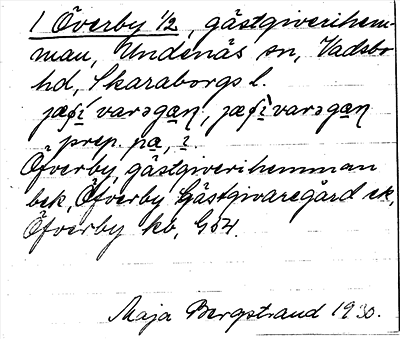 1 Överby 1/2, gästgiverihem-
man, Undenäs sn, Vadsbo
hd, Skaraborgs l.
prep. pa, i.
Öfverby, gästgiverihemman
bek, Öfverby Gästgivaregård ek,
Öfverby kb, G54.
Maja Bergstrand 1930.